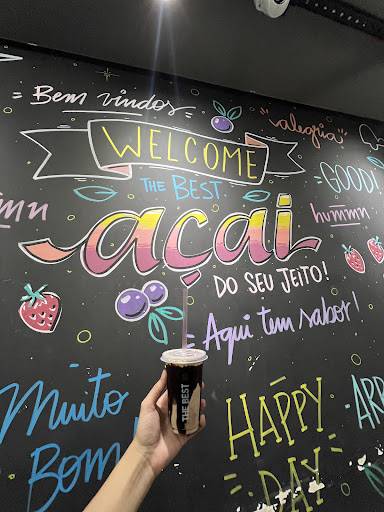 Bem vindos
WELCOME
alegria
THE BEST
GOOD!
açai
hummn
DO SEU JEITO!
Aqui tem sabor!
THE BEST
Muito
Bom!
HAPPY
DAY